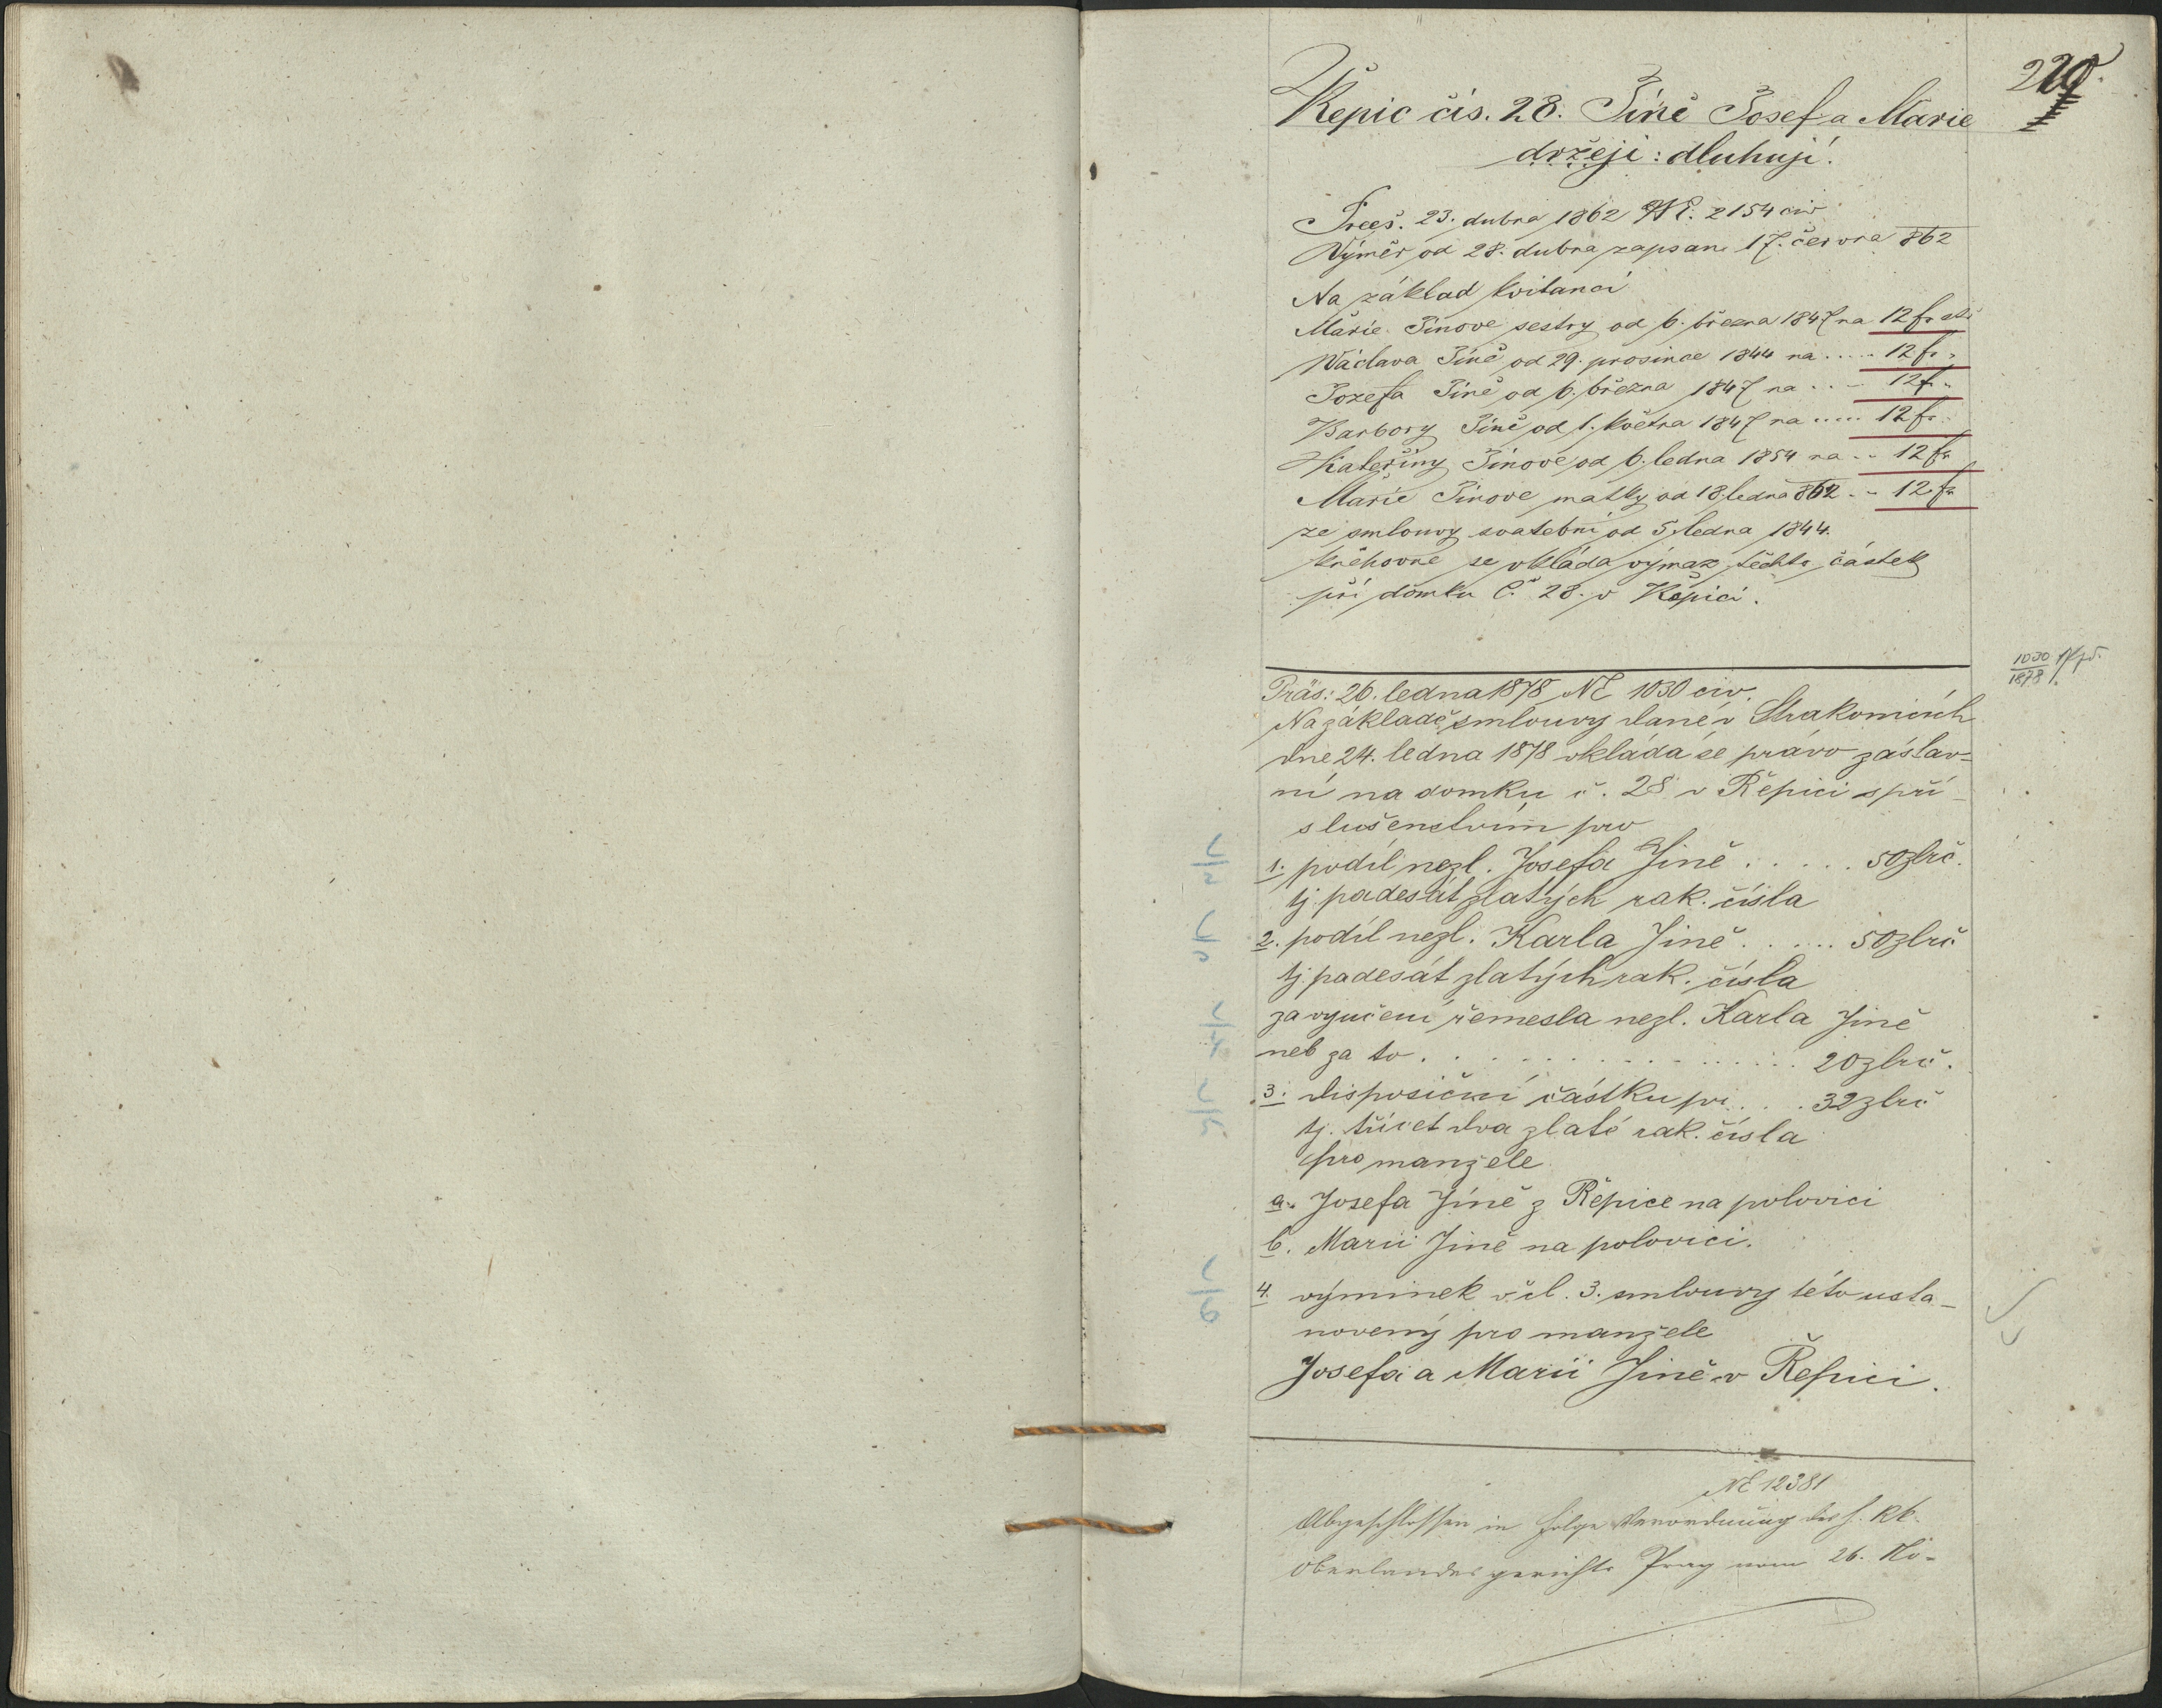 220.
Řepic čís. 28. Jíně Josef a Marie
držeji: dluhují.
Prees. 23. dubna 1862 NE. 2154 civ
Výměr od 28. dubna zapsan 17. června 862
Na základ kvitancí
Marie Jinove sestry od 6. března 1847 na 12 fr
Václava Jíně od 29. prosince 1844 na ..... 12 fr "
Jozefa Jíně od 6. března 1847 na .... 12 f "
Barbory Jíně od 1. května 1847 na ..... 12 fr
Kateřiny Jinove od 6. ledna 1854 na .. 12 fr
Marie Jinove matky od 18 ledna 862 .. 12 fr
ze smlouvy svatební od 5 ledna 1844.
knihovne se vkláda výmaz těchto částek
při domku č. 28. v Řepici.
1030
1878
Präs: 26. ledna 1878 NE 1030 civ.
Na základě smlouvy dané v Strakonicích
dne 24. ledna 1878 vkládá se právo zástav=
ní na domku č. 28 v Řepici s pří-
slušenstvím pro
1. podíl nezl. Josefa Jíně ..... 50 zlrč.
tj. padesát zlatých rak. čísla
2. podíl nezl. Karla Jíně ..... 50 zlrč
tj. padesát zlatých rak. čísla
za vyučení řemesla nezl. Karla Jíně
neb za to ................ 20 zlrč.
3. disposiční částku pr. ... 32 zlrč
tj. třicet dva zlaté rak. čísla
pro manžele
a. Josefa Jíně z Řepice na polovici
b. Marii Jíně na polovici.
4. výminek v čl. 3. smlouvy této usta-
novený pro manžele
Josefa a Marii Jíně v Řepici.
NE 12381
Abgeschlossen in Folge Verordnung des h. kk.
Oberlandesgerichts Prag vom 26. No-